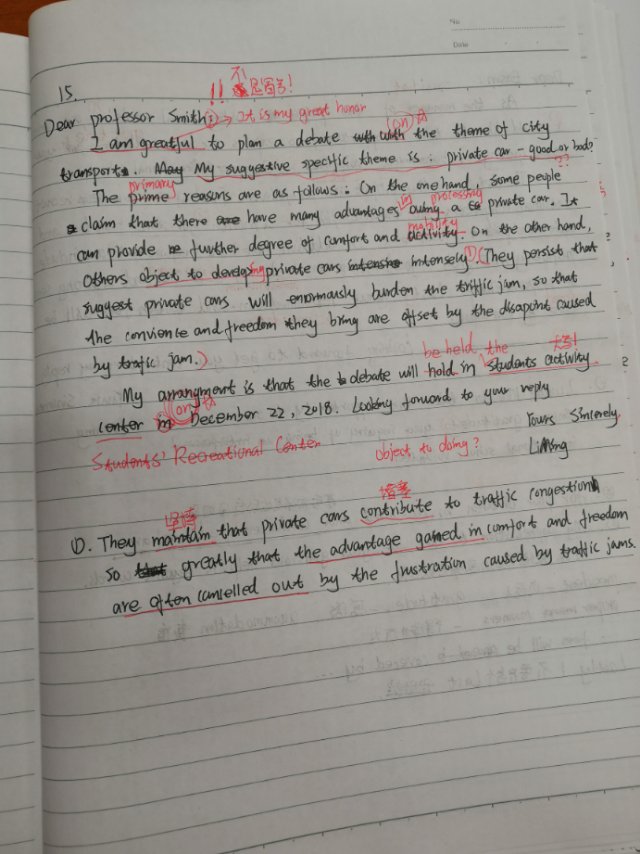 No
Date
不
15. !! 是冒号!
Dear professor Smith: → It is my great honor
I am greatful to plan a debate with with (on) the theme of city
transports. May My suggestive specific theme is : private car - good or bad?
primary ??
The prime reasons are as follows : On the one hand, some people
in processing
claim that there are have many advantages owing a private car. It
mobility
can provide further degree of comfort and activity. On the other hand,
Others object to developing private cars intensely ①. (They persist that
suggest private cars will enormously burden the triffic jam, so that
the convience and freedom they bring are offset by the disapoint caused
by trafic jam.)
be held the 大写!
My arrangment is that the debate will hold in students activity
(on)
center in December 22, 2018. Looking forword to your reply
Yours Sincerely
Students' Recreational Center object to doing? LiMing
坚持
①. They maintain that private cars contribute to traffic congestion
so that greatly that the advantage gained in comfort and freedom
are often cancelled out by the frustration caused by traffic jams.